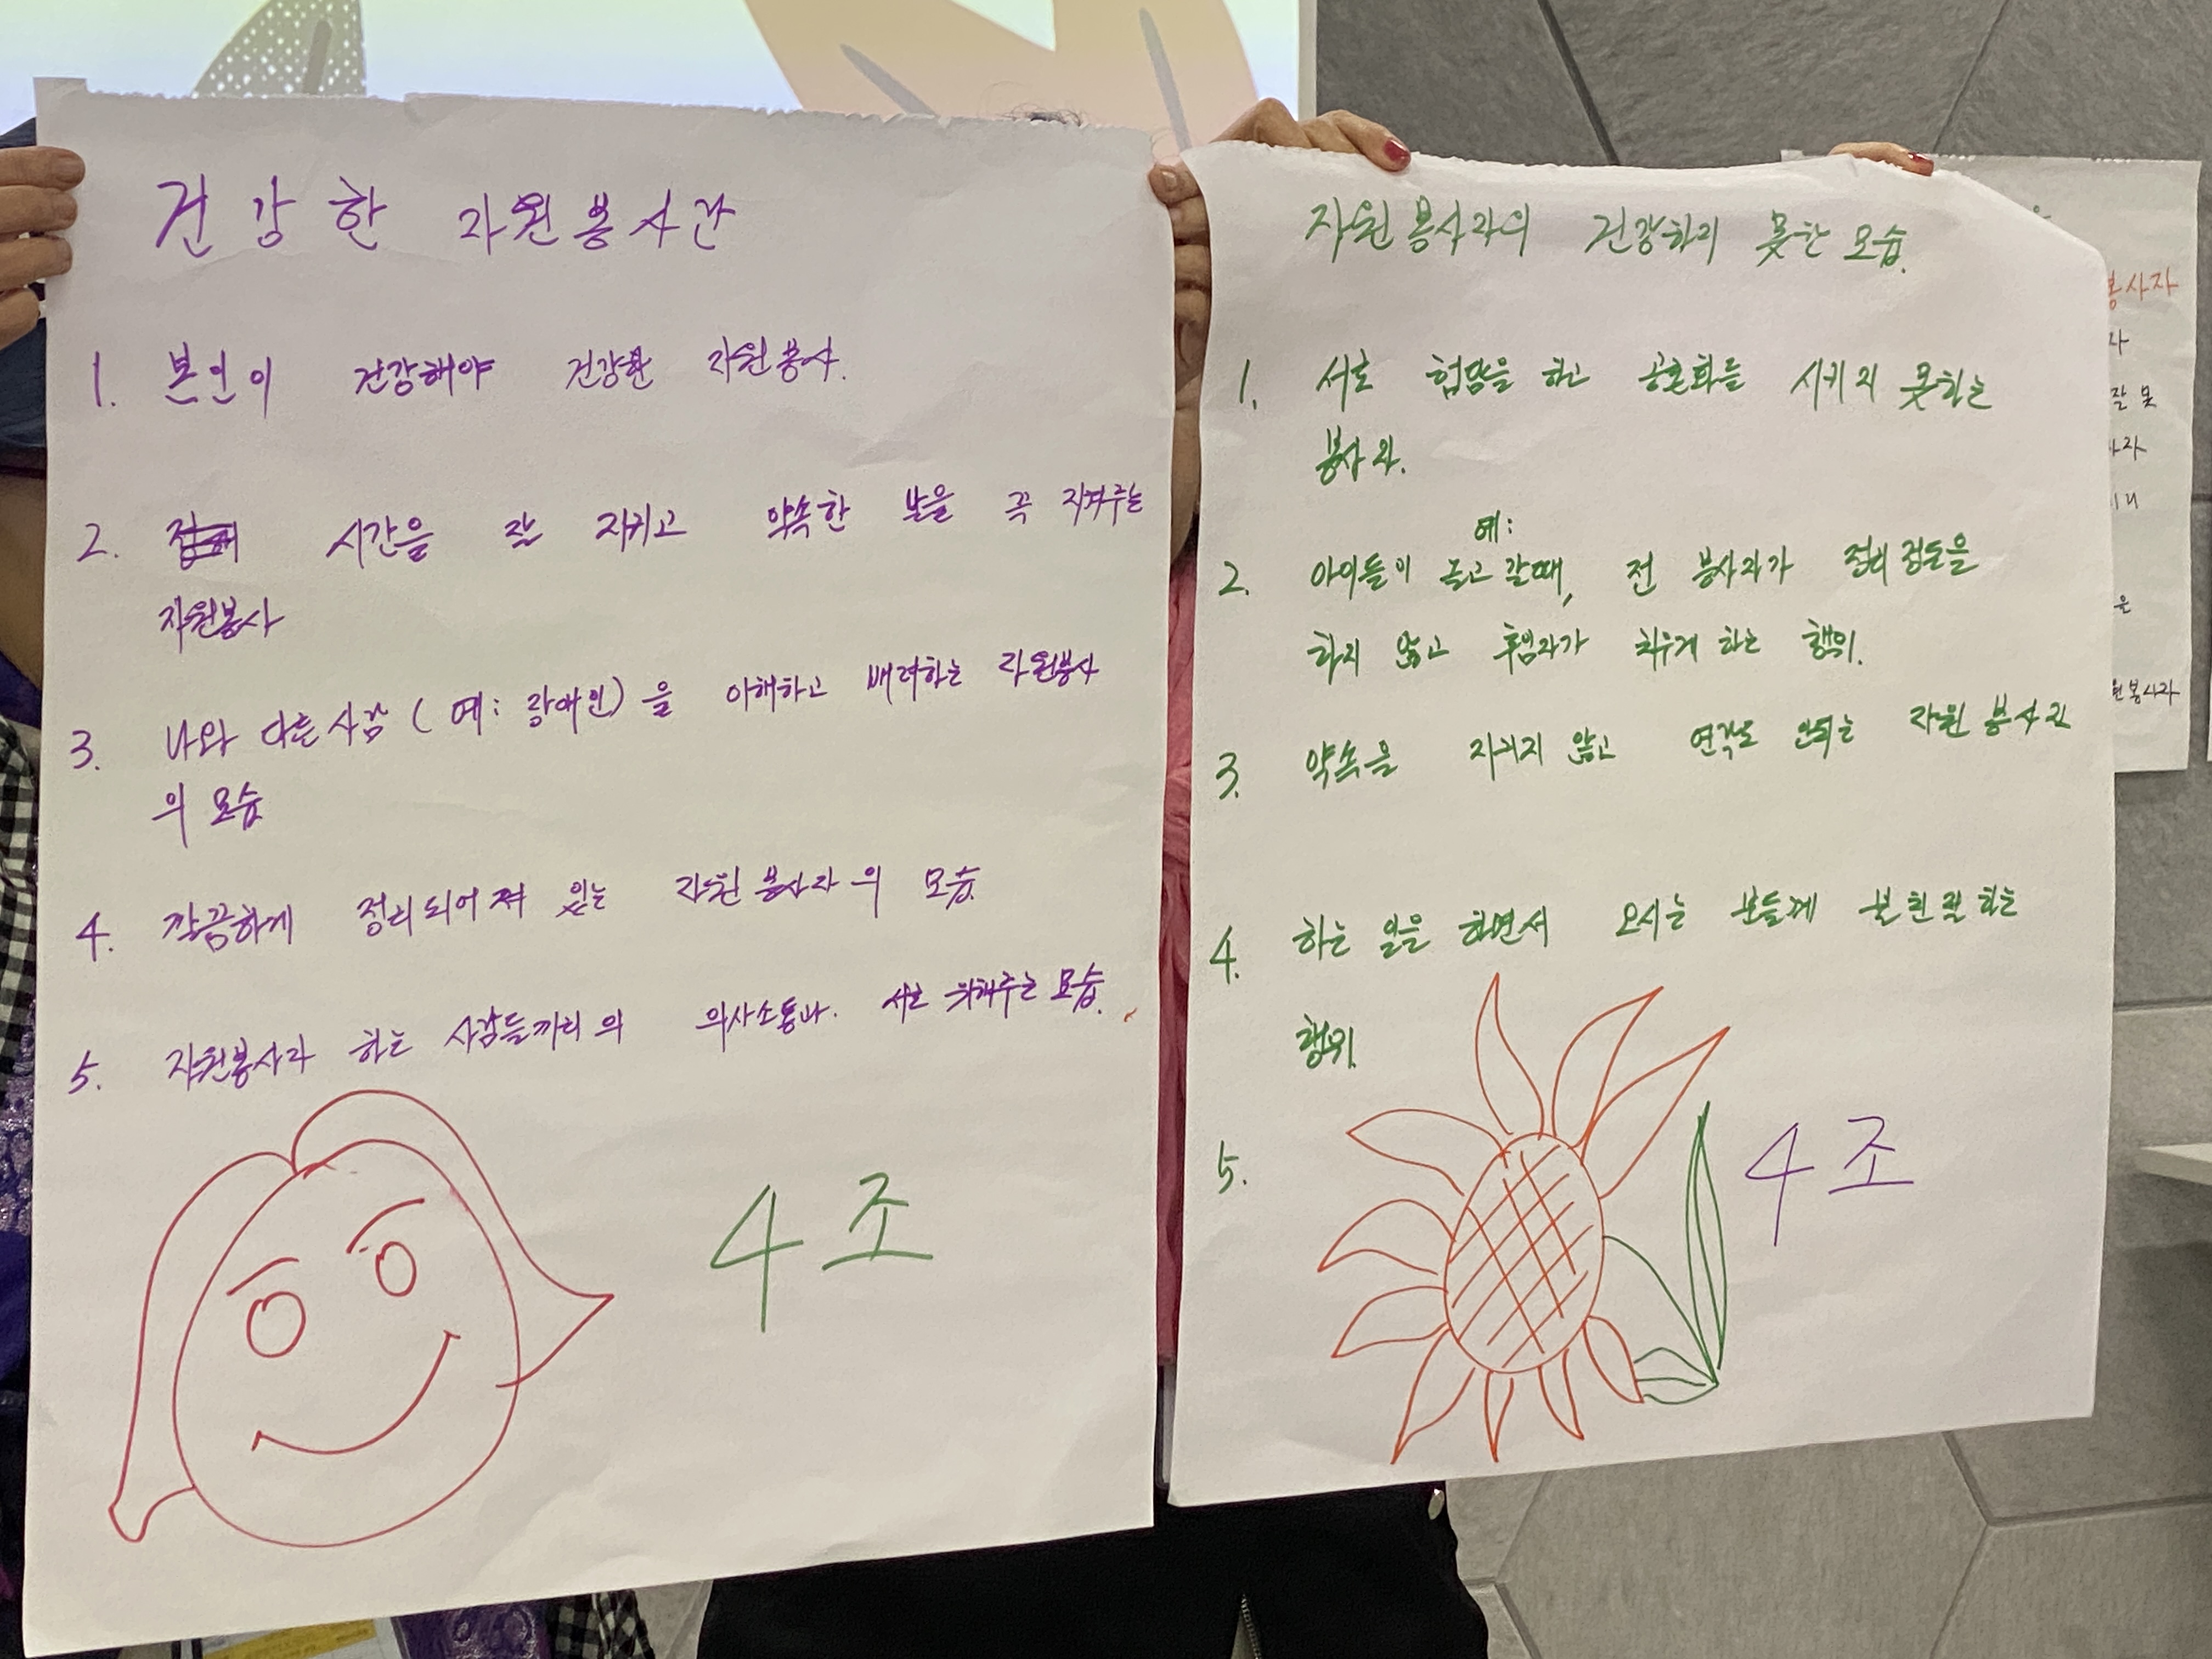 건강한 자원봉사란
1. 본인이 건강해야 건강한 자원봉사.
2. 시간을 잘 지키고 약속한 날을 꼭 지켜주는
자원봉사
3. 나와 다른사람 (예: 장애인)을 이해하고 배려하는 자원봉사
의 모습
4. 깔끔하게 정리되어져 있는 자원봉사자의 모습.
5. 자원봉사라 하는 사람들끼리의 의사소통과. 서로 위해주는 모습.
4조
자원봉사자의 건강하지 못한 모습.
1. 서로 험담을 하고 공론화를 시키지 못하는
봉사자.
예:
2. 아이들이 놀고 갈때, 전 봉사자가 정리정돈을
하지 않고 후임자가 치우게 하는 행위.
3. 약속을 지키지 않고 연락도 안되는 자원봉사자
4. 하는 일을 하면서 오시는 분들께 불친절하는
행위.
5.
4조
봉사자
자
잘못
자
은
원봉사자